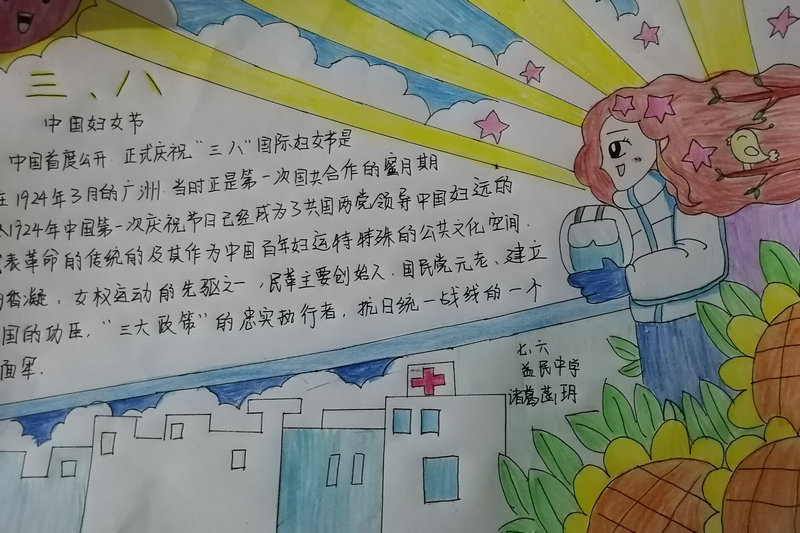 三、八
中国妇女节
中国首度公开.正式庆祝“三八”国际妇女节是
在1924年3月的广洲.当时正是第一次国共合作的蜜月期
1924年中国第一次庆祝节日已经成为了共国两党领导中国妇远的
革命的传统的及其作为中国百年妇运特特殊的公共文化空间.
香凝，女权运动的先驱之一，民革主要创始人.国民党元老、建立
国的功臣.“三大政策”的忠实执行者，抗日统一战线的一个
面军.
七、六
益民中学
诸葛 玥